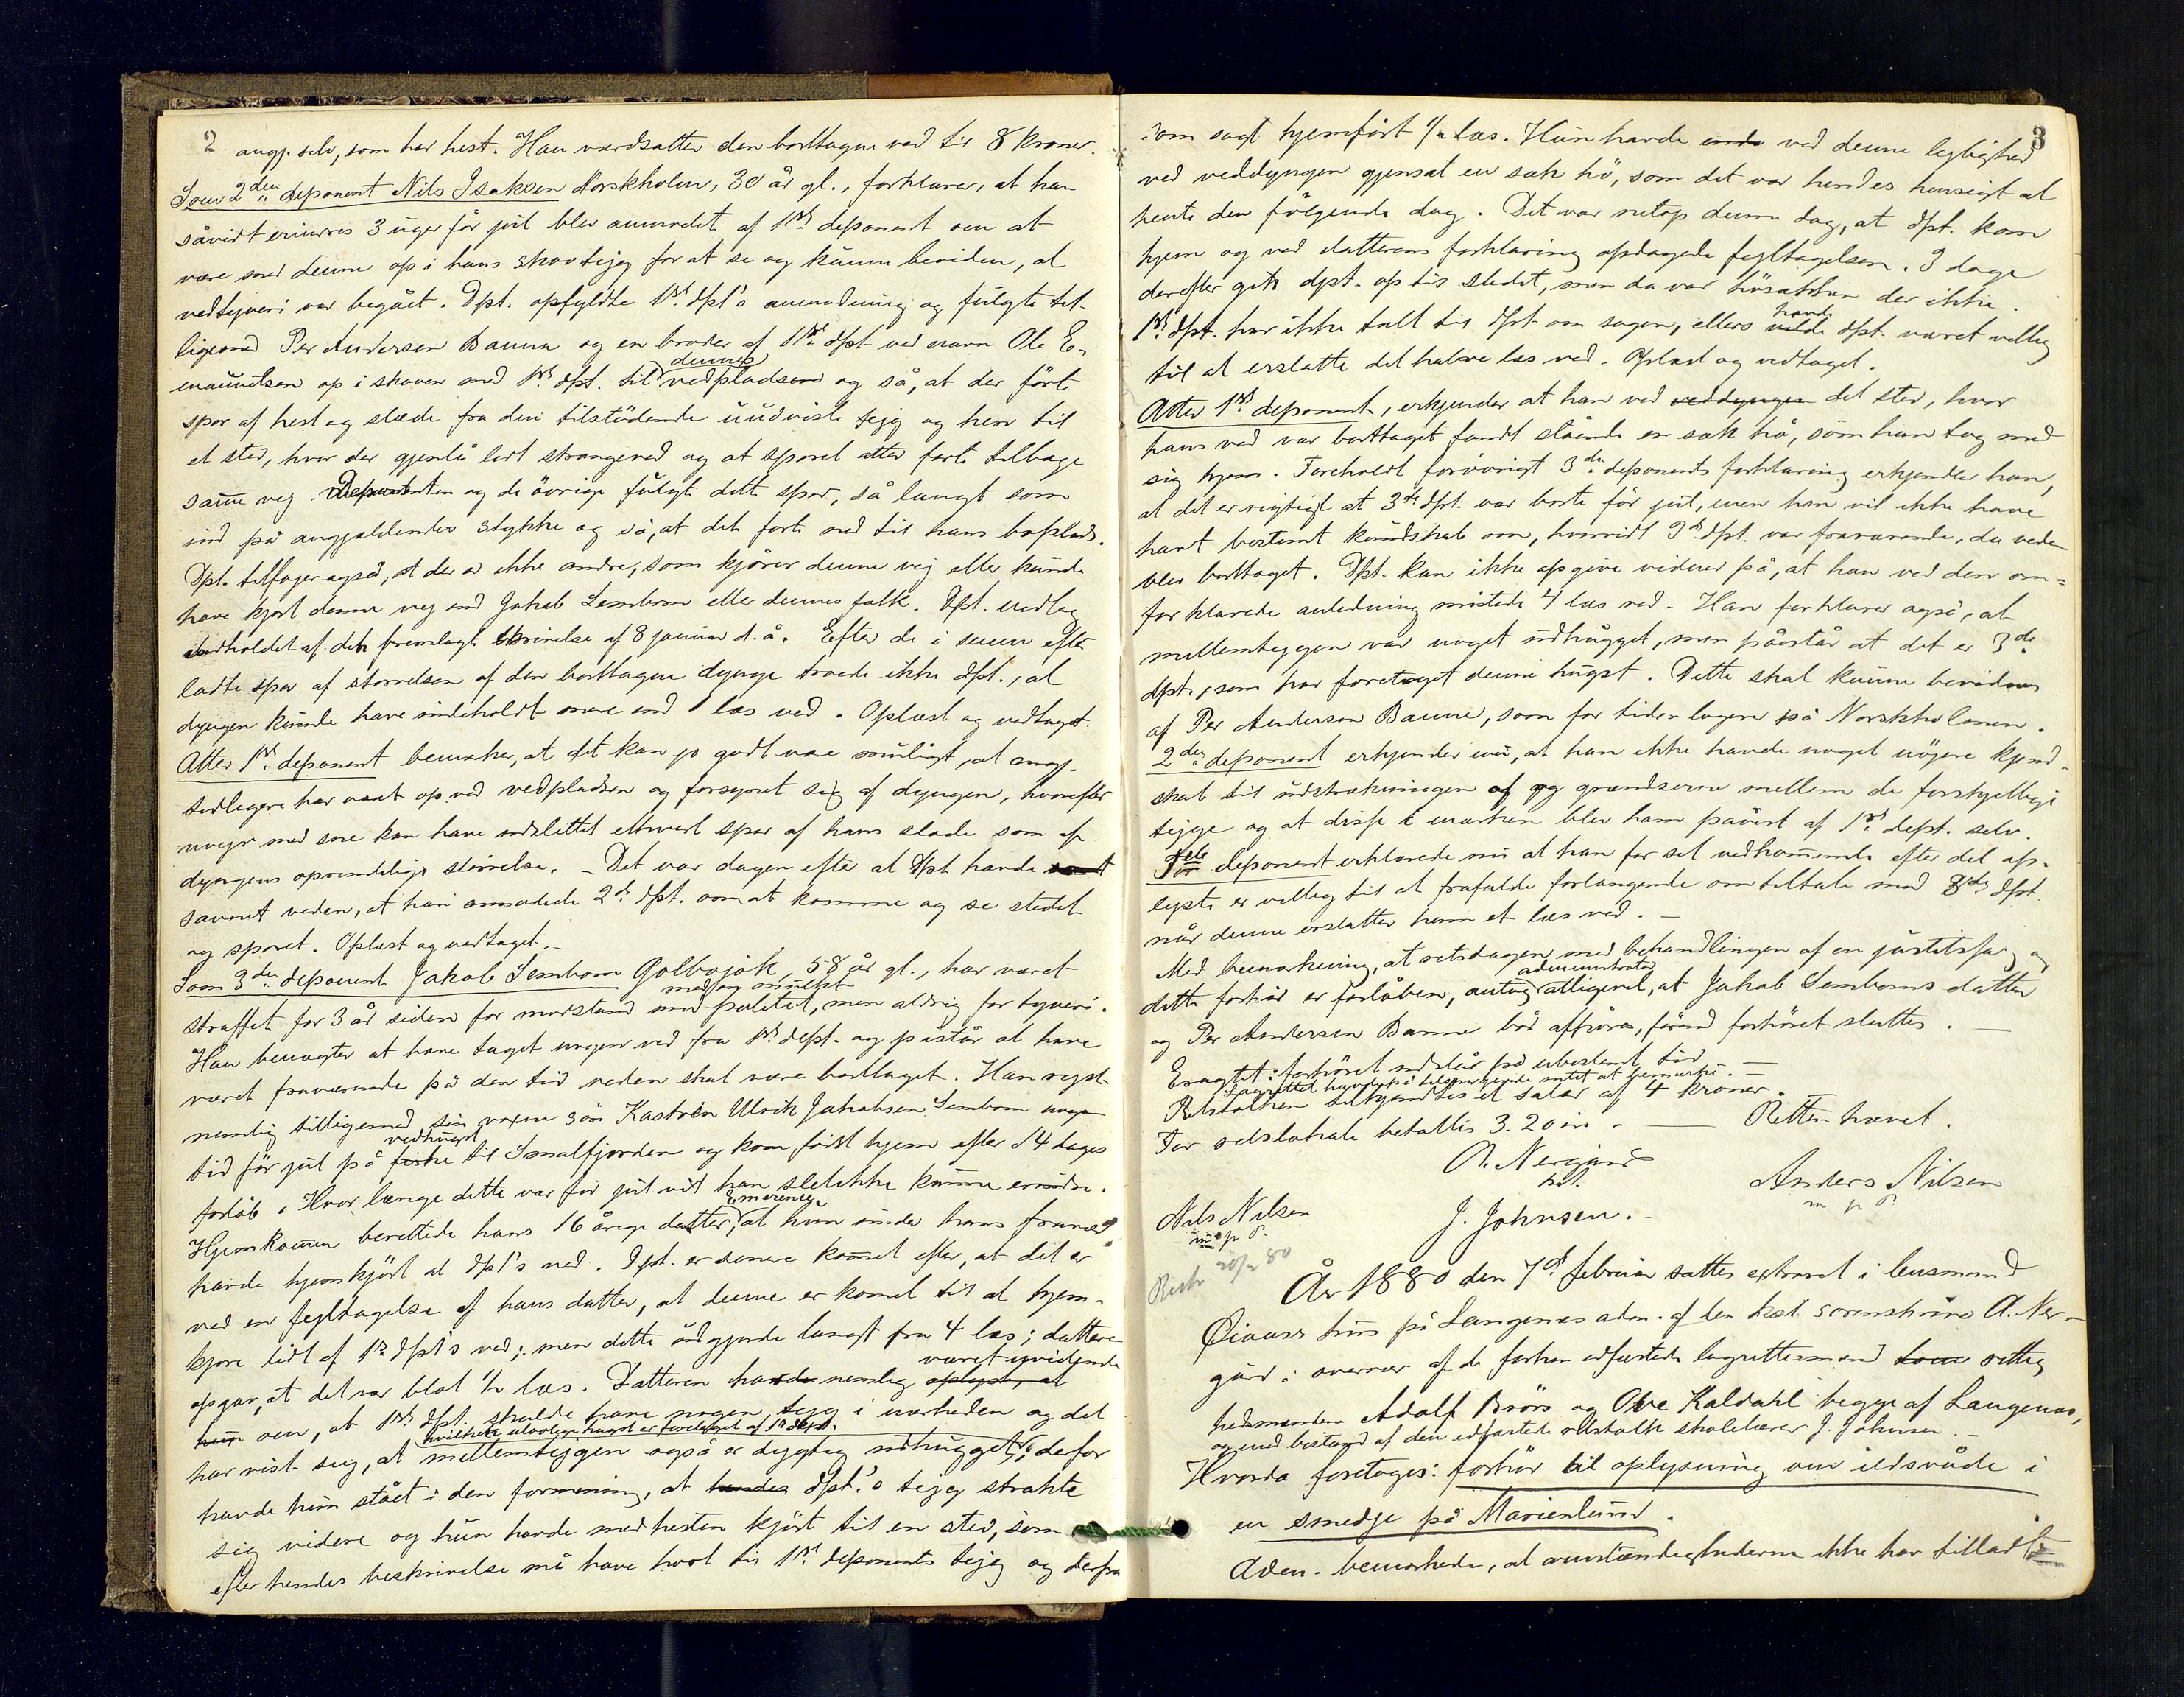 2
angp. selv, som har hest. Han værdsætter den borttagne ved til 8 kroner.
Som 2den deponent Nils Isaksen Norskholm, 30 år gl., forklarer, at han
såvidt erindres 3 uger før jul blev anmodet af 1ste deponent om at
være med denne op i hans skovtejg for at se og kunne bevidne, at
vedtyveri var begået. Dpt. opfyldte 1ste dpt's anmodning og fulgte til-
ligemed Per Andersen Banne og en broder af 1ste dpt ved navn Ole E-
mauntsen op i skoven med 1ste dpt. til dennes vedpladsen og så, at derført
spor af hest og slæde fra den tilstødende uudviste tejg og hen til
et sted, hvor der gjenlå lidt strangeved og at sporet atter førte tilbage
samme vej. Deponenten og de øvrige fulgte dette spor, så langt som
ind på angjældendes stykke og så, at det førte ned til hans boplads.
Dpt. tilføjer også, at der er ikke andre, som kjører denne vej eller kunde
have kjørt denne vej end Jakob Sembom eller dennes folk. Dpt. vedtog
indholdet af den fremlagte skrivelse af 8 januar d. å. Efter de i sneen efter
ladte spor af størrelsen af den borttagne dynge troede ikke dpt., at
dyngen kunde have indeholdt mere end 1 læs ved. Oplæst og vedtaget.
Atter 1ste deponent bemærker, at det kan jo godt være muligt, at angj.
tidligere har været op ved vedpladsen og forsynet sig af dyngen, hvorefter
uvejr med sne kan have udslettet ethvert spor af hans slæde som af
dyngens oprindelige størrelse. - Det var dagen efter at dpt. havde
savnet veden, at han anmodede 2den dpt. om at komme og se stedet
og sporet. Oplæst og vedtaget. -
Som 3die deponent Jakob Sembom Golbojok, 58 år gl., har været
straffet for 3 år siden med en mulkt for modstand mod politiet, men aldrig for tyveri.
Han benægter at have taget nogen ved fra 1ste dept. og påstår at have
været fraværende på den tid veden skal være borttaget. Han rejste
nemlig tilligemed sin voxne søn Kastrén Ulrik Jakobsen Sembom nogen
tid før jul på fiske vedhugst til Smalfjorden og kom først hjem efter 14 dages
forløb. Hvor længe dette var før jul vil han slet ikke kunne erindre.
Hjemkommen berettede hans 16 årige datter Emerense, at hun under hans fravær
havde hjemkjørt al dpt's ved. Dpt. er senere kommet efter, at det er
ved en fejltagelse af hans datter, at denne er kommet til at hjem-
kjøre lidt af 1ste dpt's ved; men dette udgjorde langt fra 4 læs; datteren
opgav, at det var blot 1/2 læs. Datteren havde nemlig oplyst, at været uvidende
hun om, at 1ste dpt. skulde have nogen tejg i nærheden og det
har vist sig, at mellemtejgen også er dygtig udhugget, hvilken ulovlige hugst er foretaget af 1ste dept.; derfor
havde hun stået i den formening, at hendes dpt.'s tejg strakte
sig videre og hun havde med hesten kjørt til en sted, som
efter hendes beskrivelse må have hørt til 1ste deponents tejg og derfra
3
som sagt hjemført 1/2 læs. Hun havde ende ved denne leylighed
ved veddyngen gjensat en sæk hø, som det var hendes hensigt at
hente den følgende dag. Det var netop denne dag, at dpt. kom
hjem og ved datterens forklaring opdagede fejltagelsen. 3 dage
derefter gik dpt. op til stedet, men da var høsækken der ikke.
1ste dpt. har ikke talt til dpt. om sagen, ellers vilde havde dpt. været villig
til at erstatte det halve læs ved. Oplæst og vedtaget.
Atter 1ste deponent, erkjender at han ved veddyngen det sted, hvor
hans ved var borttaget fandt stående en sæk hø, som han tog med
sig hjem. Foreholdt forøvrigt 3die deponents forklaring erkjender han,
at det er rigtigt at 3die dpt. var borte før jul, men han vil ikke have
havt bestemt kundskab om, hvorvidt 3die dpt. var fraværende, da veden
blev borttaget. Dpt. kan ikke opgive vidner på, at han ved den om-
forklarede anledning mistede 4 læs ved. Han forklarer også, at
mellemtejgen var noget udhugget, men påstår at det er 3die
dpt., som har foretaget denne hugst. Dette skal kunne bevidnes
af Per Andersen Banne, som for tiden logere på Norskholmen.
2den deponent erkjender nu, at han ikke havde noget nøjere kjend-
skab til udstrækningen af og grændserne mellem de forskjellige
tejge og at disse i marken blev ham påvist af 1ste dept. selv.
1ste deponent erklærede nu at han for sit vedkommende efter det op-
lyste er villig til at frafalde forlangende om tiltale mod 3die dpt.
når denne erstatter ham et læs ved. -
Med bemærkning, at retsdagen med behandlingen af en justitssag og
dette forhør er forløben, antog administrator alligevel, at Jakob Semboms datter
og Per Andersen Banne bør afhøres, førend forhøret sluttes. -
Eragtet: forhøret udstår på ubestemt tid.
Lagrettet havde på tilspørgende intet at bemærke. -
Retstolken tilkjendtes et salær af 4 kroner.
For retslokale betaltes 3.20 øre. - Retten hævet.
A. Nergård
kst.
Anders Nilsen
m. p. P.
Nils Nilsen
m. p. P.
J. Johnsen. -
Beskr 20/2 80
År 1880 den 7de februar sattes extraret i lensmand
Qvanes hus på Langenæs adm. af den kst. sorenskriver A. Ner-
gård i overvær af de forhen edfæstede lagrettesmænd som rettes
hedsmændene Adolf Brors og Ole Kaldahl begge af Langenæs,
og med bistand af den edfæstede retstolk skolelærer J. Johnsen. -
Hvorda foretoges: forhør til oplysning om ildsvåde i
en smedje på Marienlund.
Adm. bemærkede, at omstændighederne ikke har tilladt